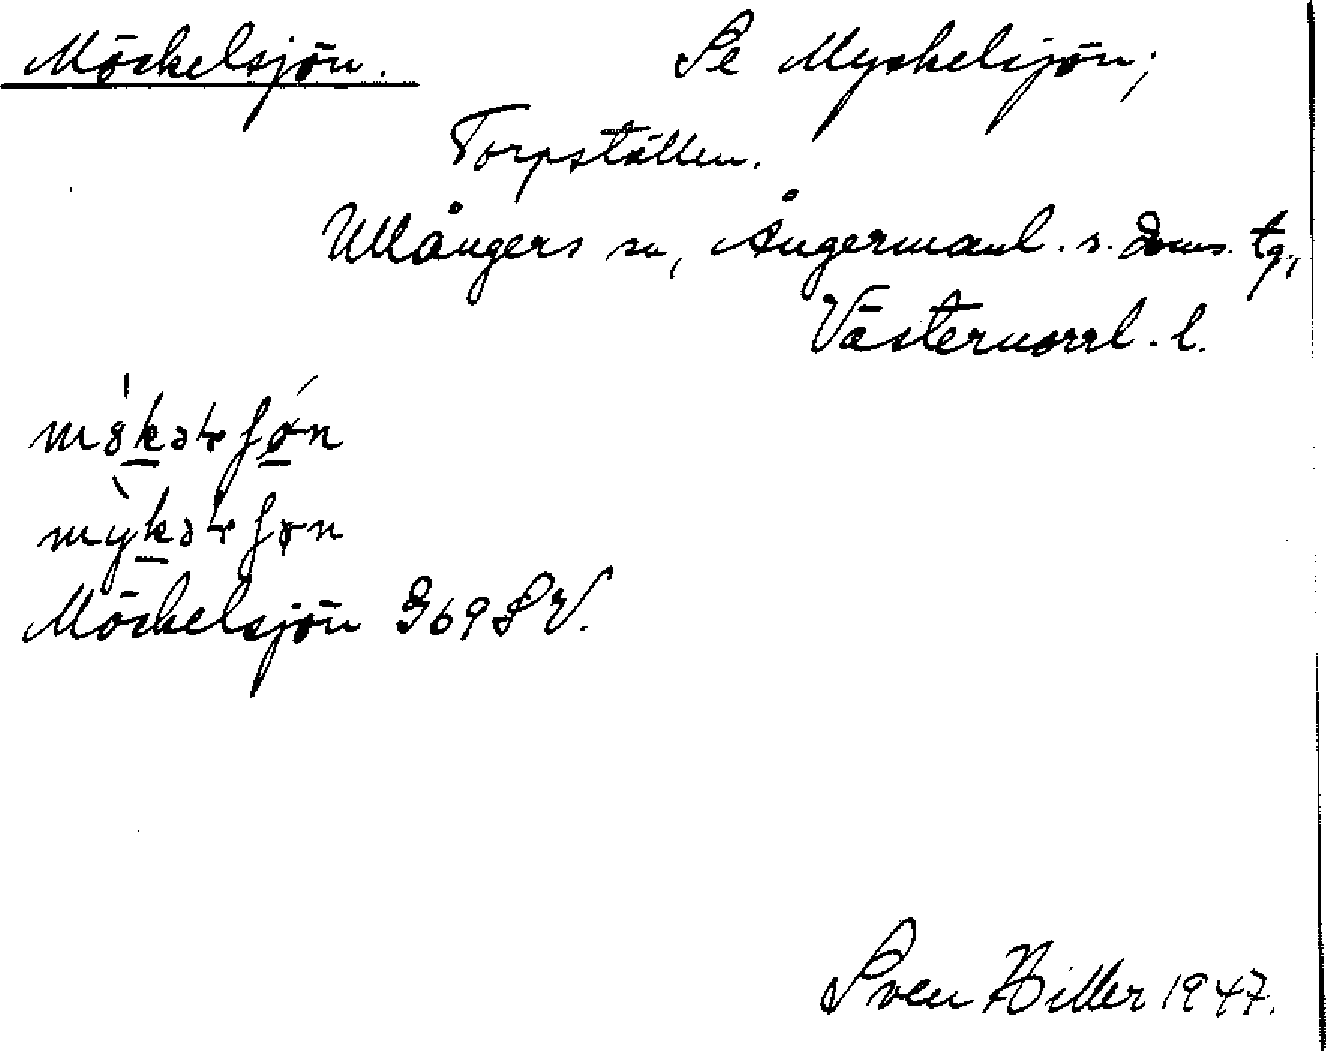 Möckelsjön. Se Myckelsjön;
Torpställen.
Ullångers sn, Ångermanl. s. doms. tg.,
Västernorrl. l.
Möckelsjön G69SV.
Sven Hiller 1947.